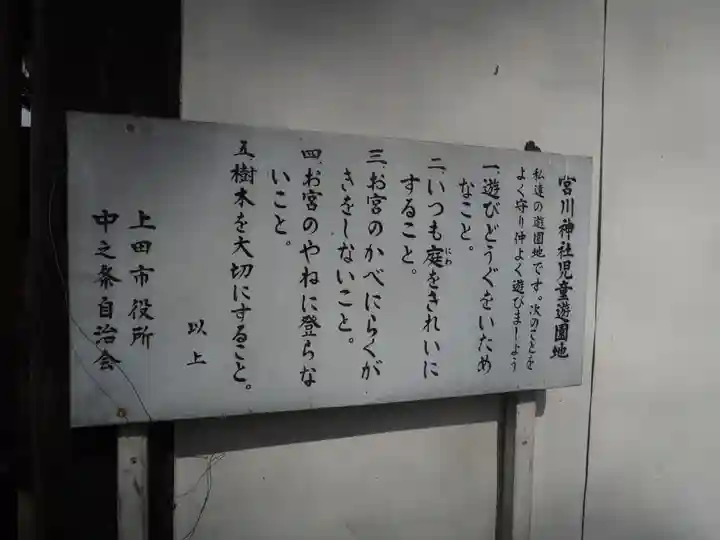 宮川神社児童遊園地
私達の遊園地です。次のことを
よく守り仲よく遊びましよう
一、遊びどうぐをいため
なこと。
二、いつも庭をきれいに
にわ
すること。
三、お宮のかべにらくが
きをしないこと。
四、お宮のやねに登らな
いこと。
五、樹木を大切にすること。
以上
上田市役所
中之条自治会